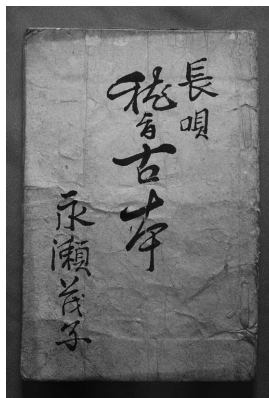 長唄
稽古本
永瀬茂子